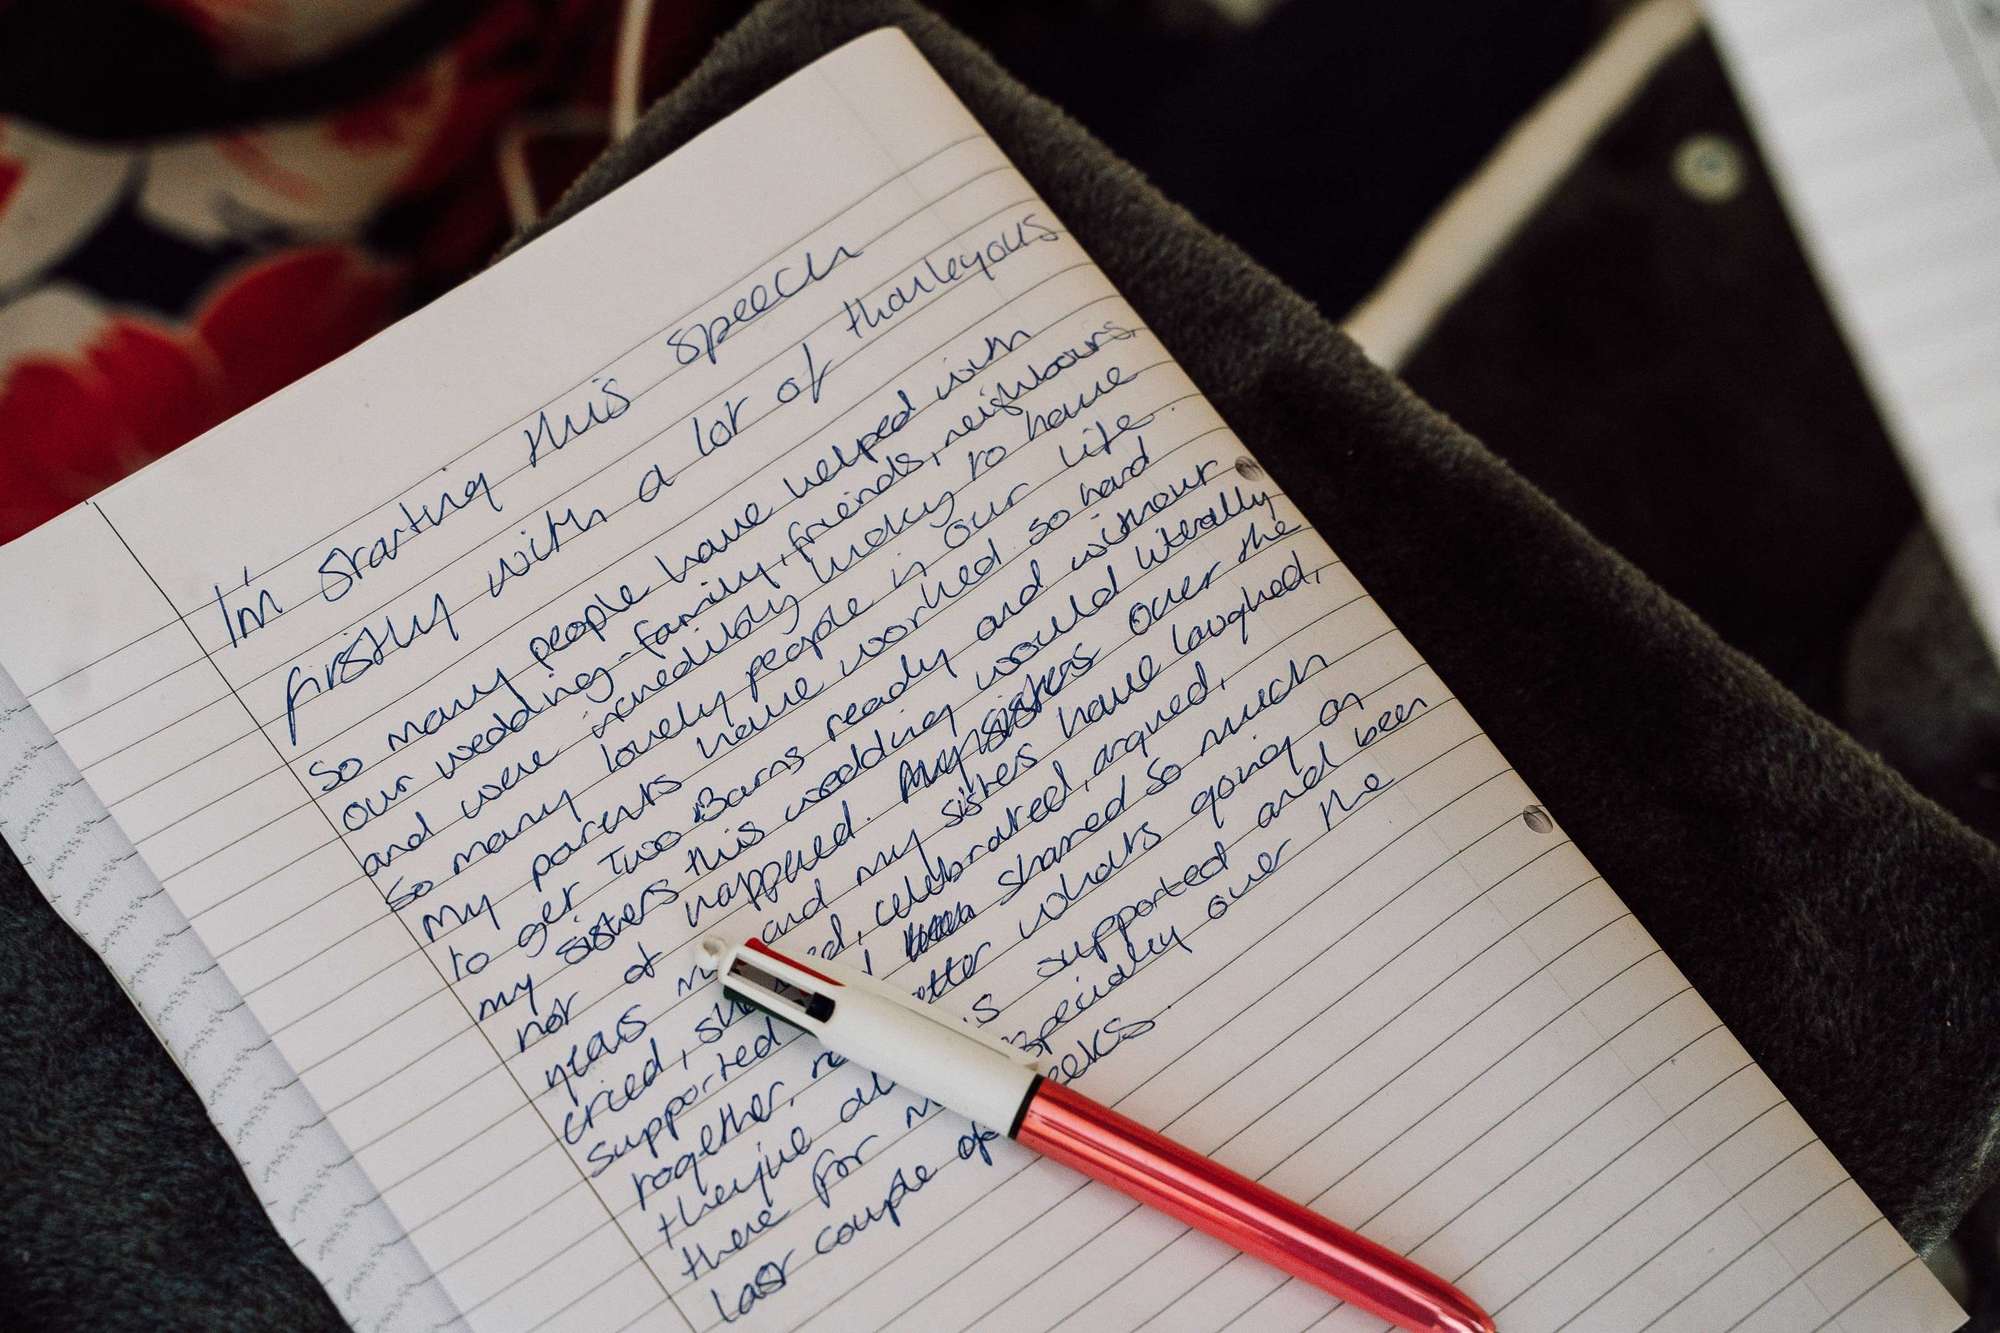 I'm starting this speech
firstly with a lot of thankyous
So many people have helped with
our wedding - family, freinds, neighbours
and were incredibly lucky to have
so many lovely people in our life.
My parents have worked so hard
to get Two Barns ready and without
my sisters this wedding would literally
not of happened. My sisters Over the
years and my sisters have laughed,
cried, celebrated, argued,
supported shared so much
together, whats going on
they've supported and been
there for over the
last couple of